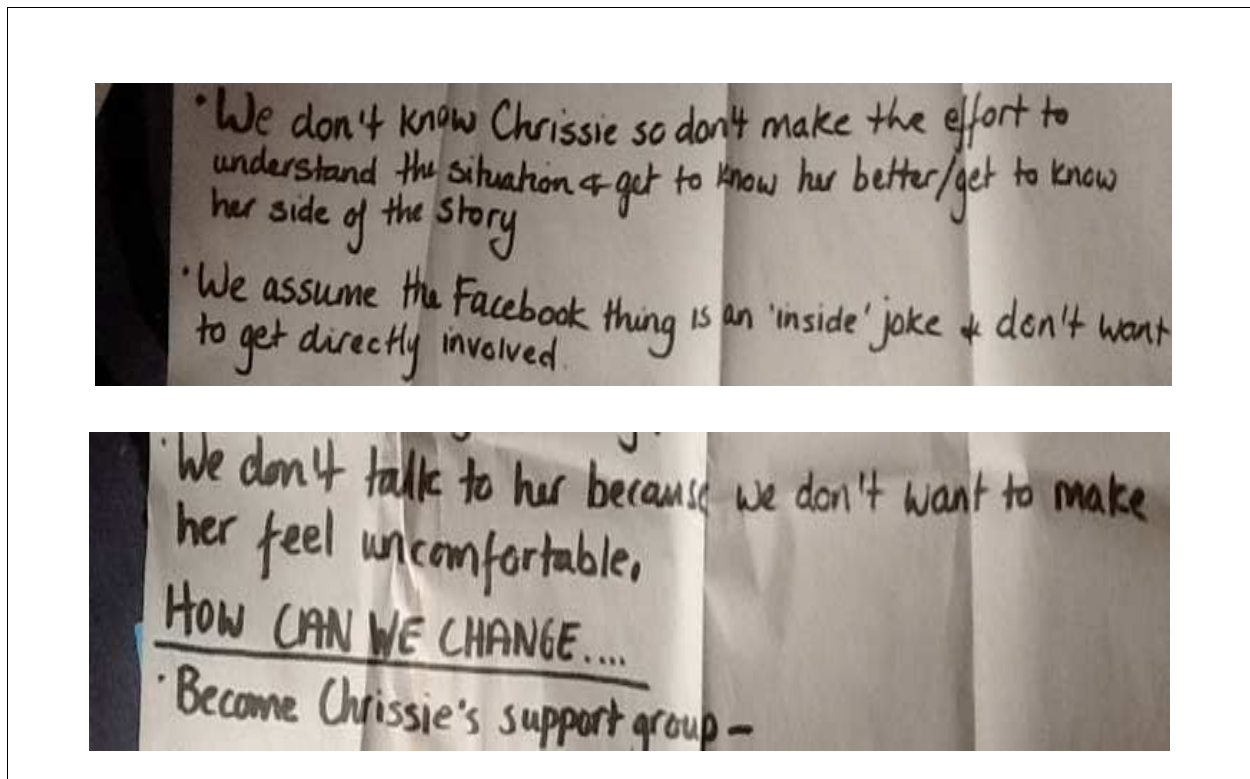 ·We don't know Chrissie so don't make the effort to
understand the situation & get to know her better/get to know
her side of the story
·We assume the Facebook thing is an 'inside' joke & don't want
to get directly involved.
·We don't talk to her because we don't want to make
her feel uncomfortable.
HOW CAN WE CHANGE....
·Become Chrissie's support group -